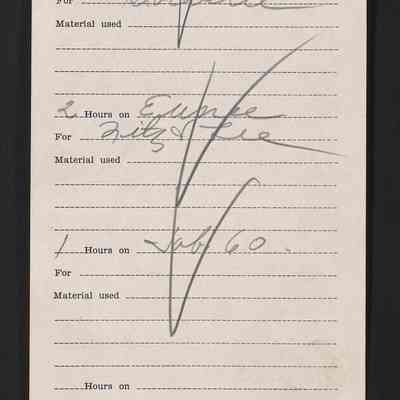 For
Material used
2 Hours on Eunice
For Fitz & Lee
Material used
1 Hours on Job 60.
For
Material used
Hours on